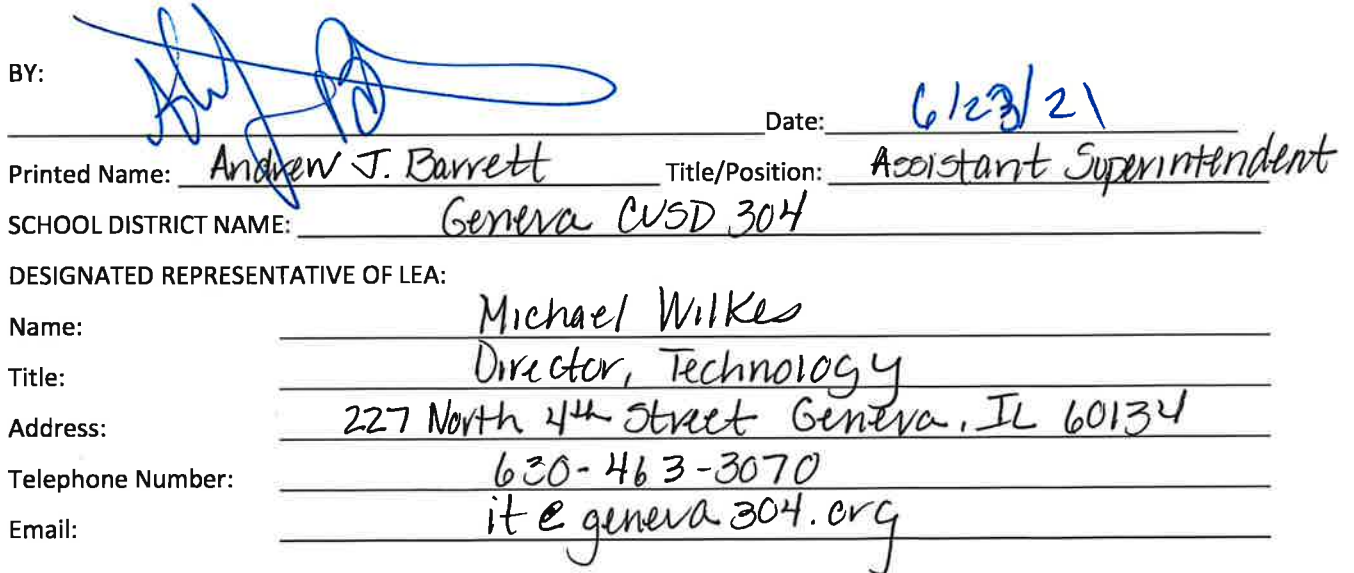 BY:
Date: 6/23/21
Printed Name: Andrew J. Barrett Title/Position: Assistant Superintendent
SCHOOL DISTRICT NAME: Geneva CUSD 304
DESIGNATED REPRESENTATIVE OF LEA:
Name: Michael Wilkes
Title: Director, Technology
Address: 227 North 4th Street Geneva, IL 60134
Telephone Number: 630-463-3070
Email: it@geneva304.org